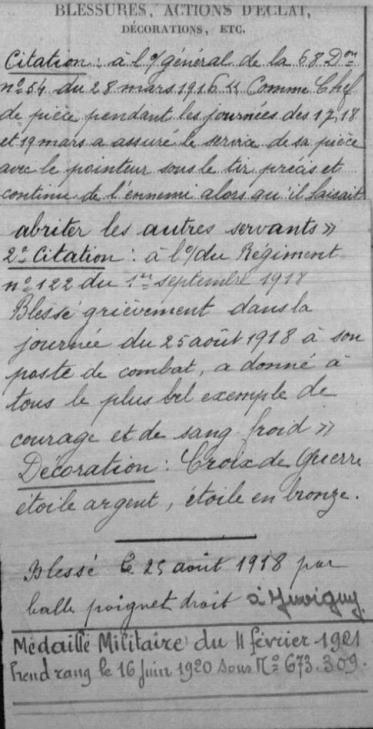 BLESSURES, ACTIONS D'ÉCLAT,
DÉCORATIONS, ETC.
Citation : à l'o/ général de la 68 Don
n° 54 du 28 mars 1916 « Comme Chef
de pièce pendant les journées des 17, 18
et 19 mars a assuré le service de sa pièce
avec le pointeur sous le tir précis et
continu de l'ennemi alors qu'il faisait
abriter les autres servants »
2e Citation : à l'o/ du Régiment
n° 122 du 1er septembre 1918
Blessé grièvement dans la
journée du 25 août 1918 à son
poste de combat, a donné à
tous le plus bel exemple de
courage et de sang froid »
Décoration : Croix de Guerre
étoile argent, étoile en bronze.
Blessé le 25 août 1918 par
balle poignet droit à Juvigny.
Médaille Militaire du 11 février 1921
Prend rang le 16 juin 1920 sous N° 673.309.